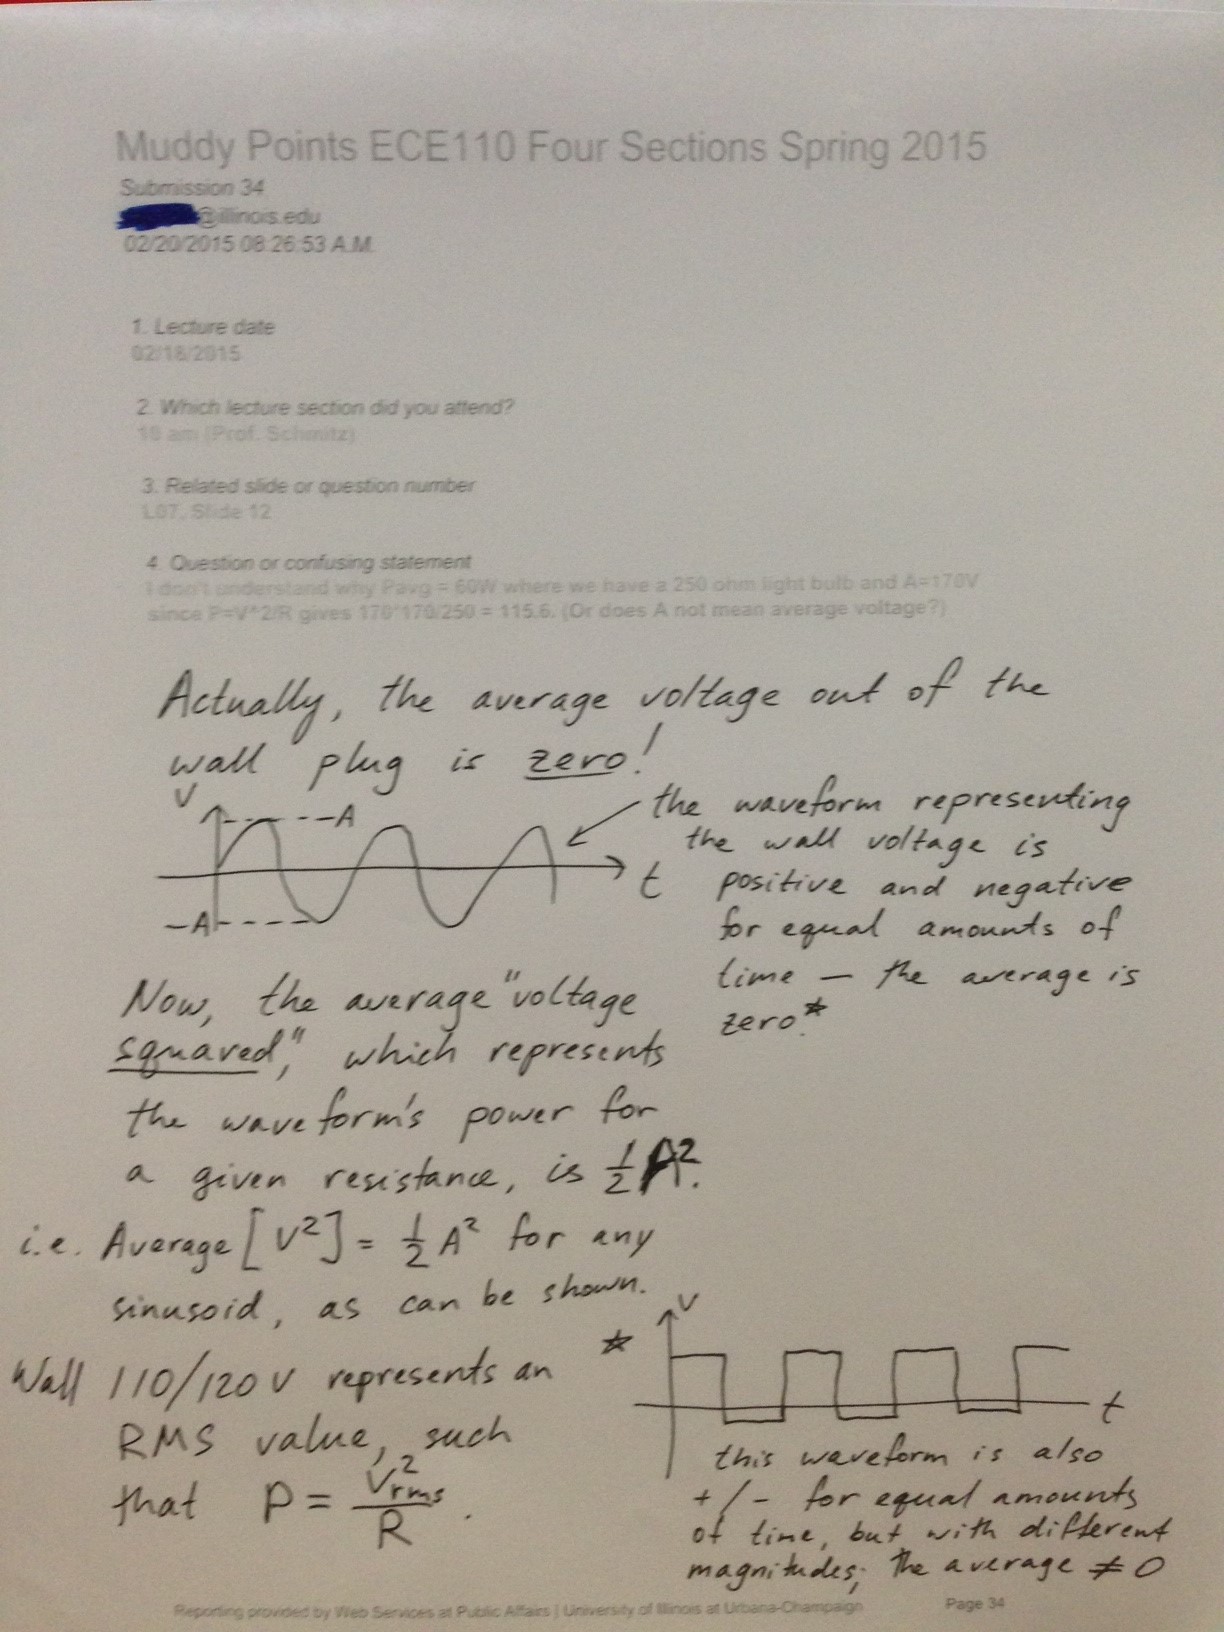 Muddy Points ECE110 Four Sections Spring 2015
Submission 34
@illinois.edu
02/20/2015 08:26:53 A.M.
1. Lecture date
02/18/2015
2. Which lecture section did you attend?
10 am (Prof. Schmitz)
3. Related slide or question number
L07, Slide 12
4. Question or confusing statement
I don't understand why Pavg = 60W where we have a 250 ohm light bulb and A=170V
since P=V^2/R gives 170*170/250 = 115.6. (Or does A not mean average voltage?)
Actually, the average voltage out of the
wall plug is zero!
V
A
-A
t
the waveform representing
the wall voltage is
positive and negative
for equal amounts of
time — the average is
zero.*
Now, the average "voltage
squared," which represents
the waveform's power for
a given resistance, is ½A².
i.e. Average [V²] = ½ A² for any
sinusoid, as can be shown.
Wall 110/120 V represents an
RMS value, such
that P = Vrms²/R.
*
V
t
this waveform is also
+/- for equal amounts
of time, but with different
magnitudes; the average ≠ 0
Reporting provided by Web Services at Public Affairs | University of Illinois at Urbana-Champaign
Page 34